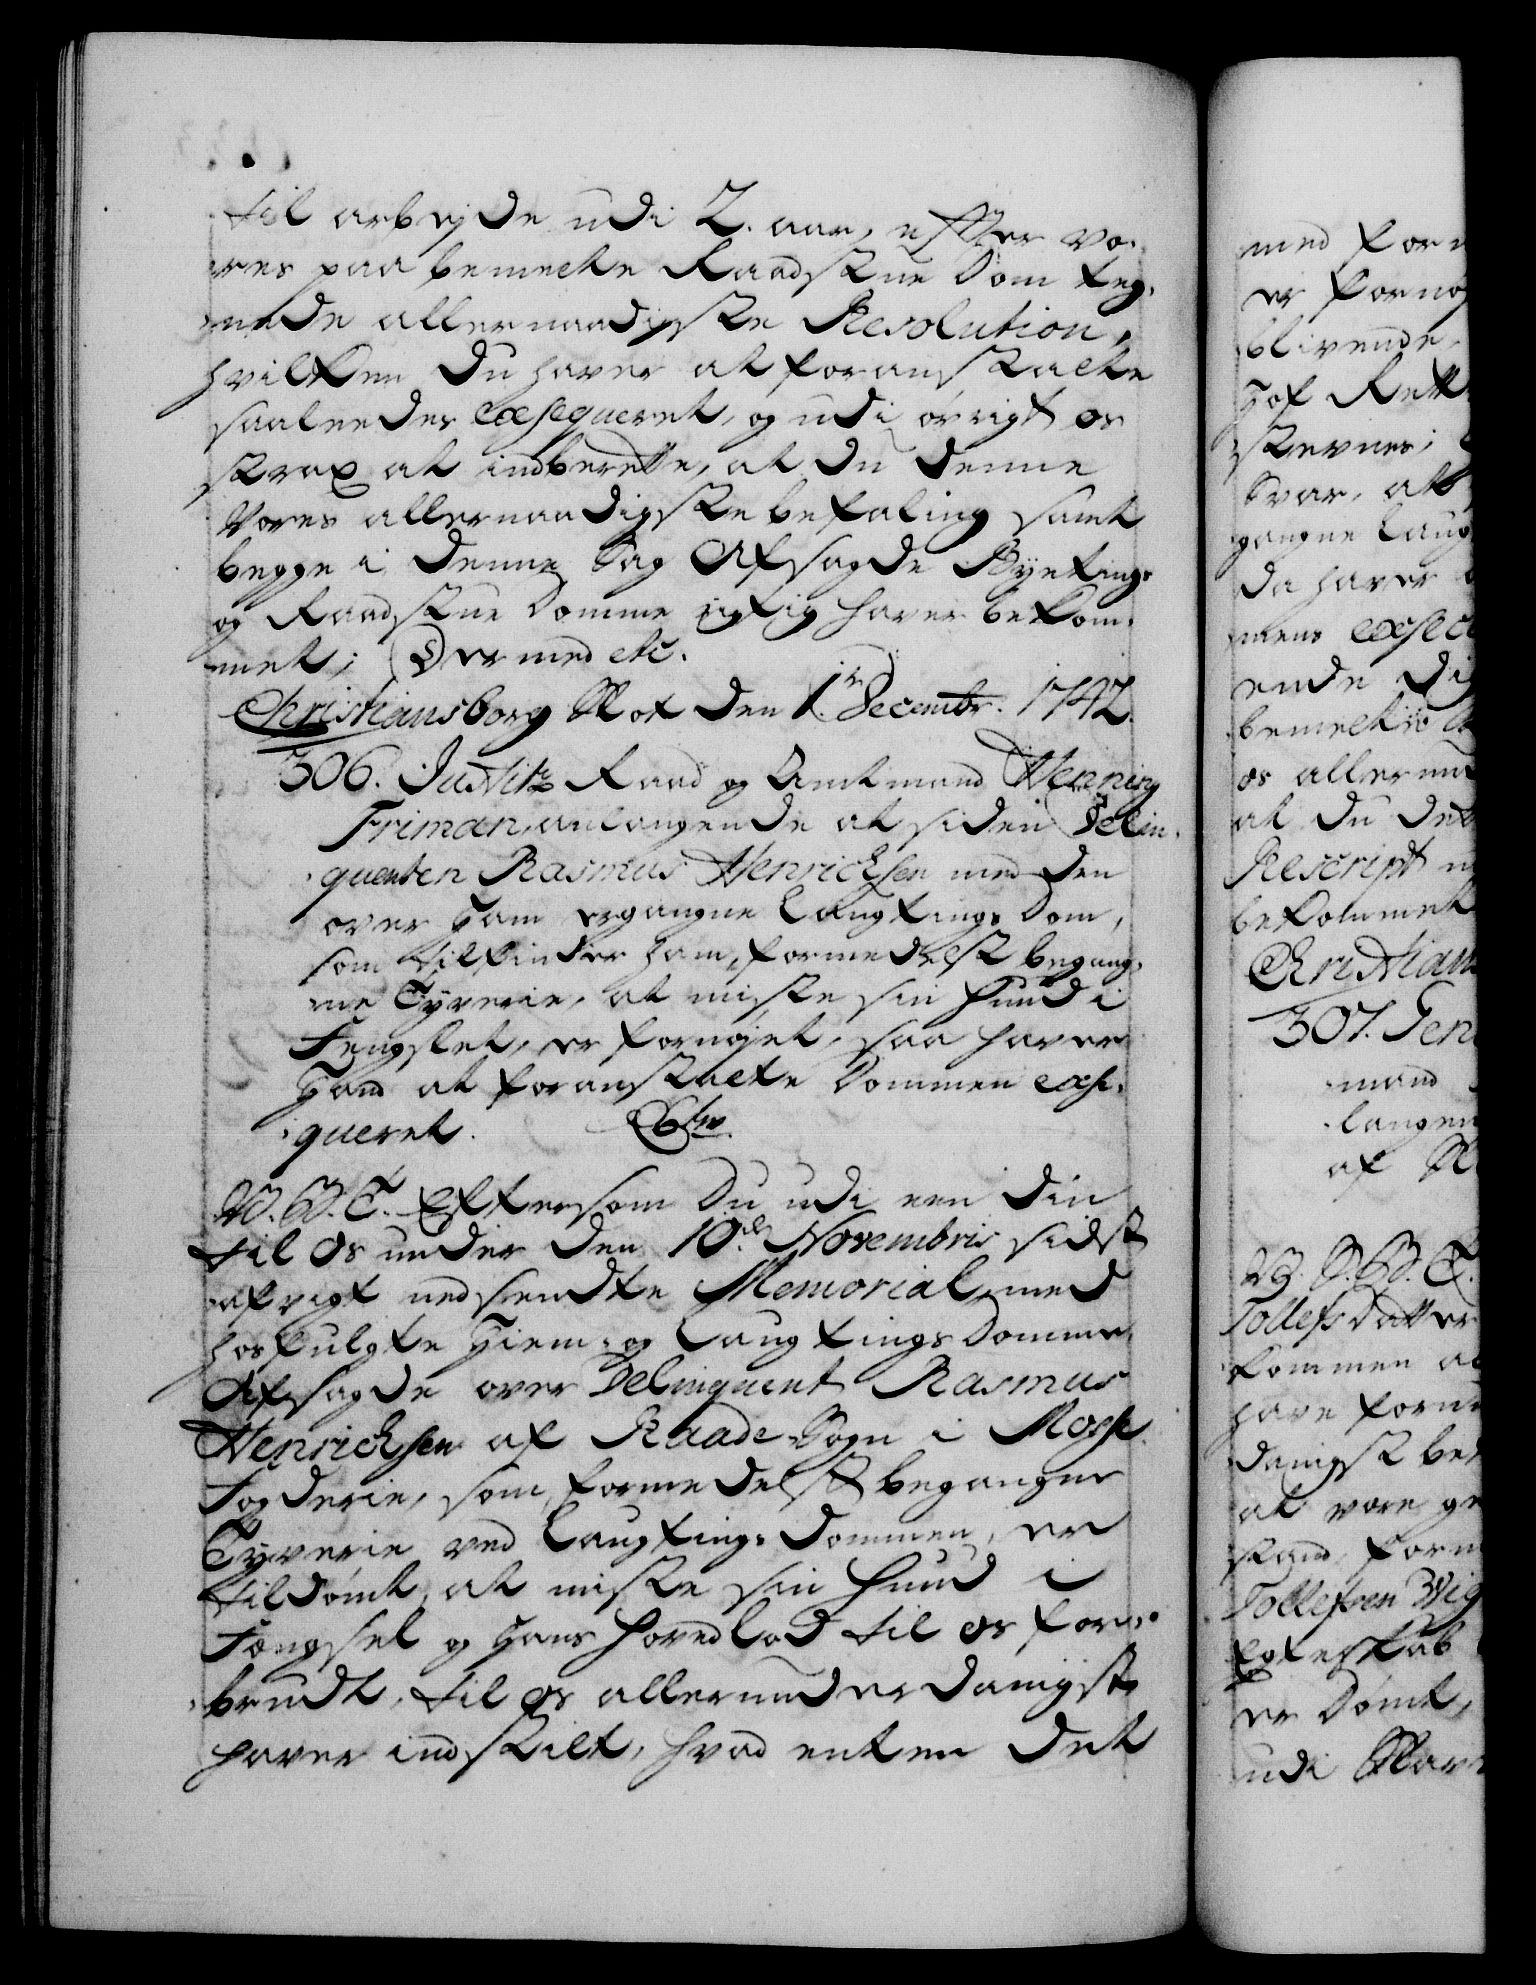 til arbejde udi 2. aar, effter vo-
res paa bemelte Raadstue Dom teg-
nede allernaadigste Resolution,
hvilken du haver at foranstalte
saaleedes exsequeret, og udi øvrigt os
strax at indberette, at du denne
Vores allernaadigste befaling samt
begge i denne Sag Afsagde Byetings
og Raadstue Domme rigtig haver bekom-
met; Dermed etc.
Christiansborg Slot den 1.te Decembr. 1742.
306. Justitz Raad og Amtmand Henning
Friman, anlangende at siden Delin-
quenten Rasmus Henrichsen med den
over Ham ergangne Laugtings Dom,
som tilfinder ham, formedelst begang-
ne Tyverie, at miste sin Huud i
Fengslet, er fornøjet, saa haver
Hand at foranstalte Dommen exse-
queret.
V. G. T. Eftersom Du udi een din
til Os under den 10de Novembris sidst
afvigt nedsendte Memorial, med
hosfulgte Hiem- og Laugtings Domme
Afsagde over Delinquent Rasmus
Henrichsen af Raade Sogn i Mosse
Fogderie, som formedelst begangne
Tyverie ved Laugtings Dommen, er
tildømt at miste sin Huud i
Fængsel og Hans Hovedlod til os for-
brudt, til os allerunderdanigst
haver indstilt, hvad enten det
med for
er fornøj
blivende
Hof Rett
stevnes;
Svar, at
gangne Laug
da haver
mens exsec
ende di
bemelte
os allerun
at du de
Rescript
bekommet
Christians
307. Gen
mand
langen
af Sl
V. G. T.
Tollefsdatter
kommen
have form
danigst be
at være ge
stand, form
Tollefsen
Egteskab
er Dømt,
udi Slav